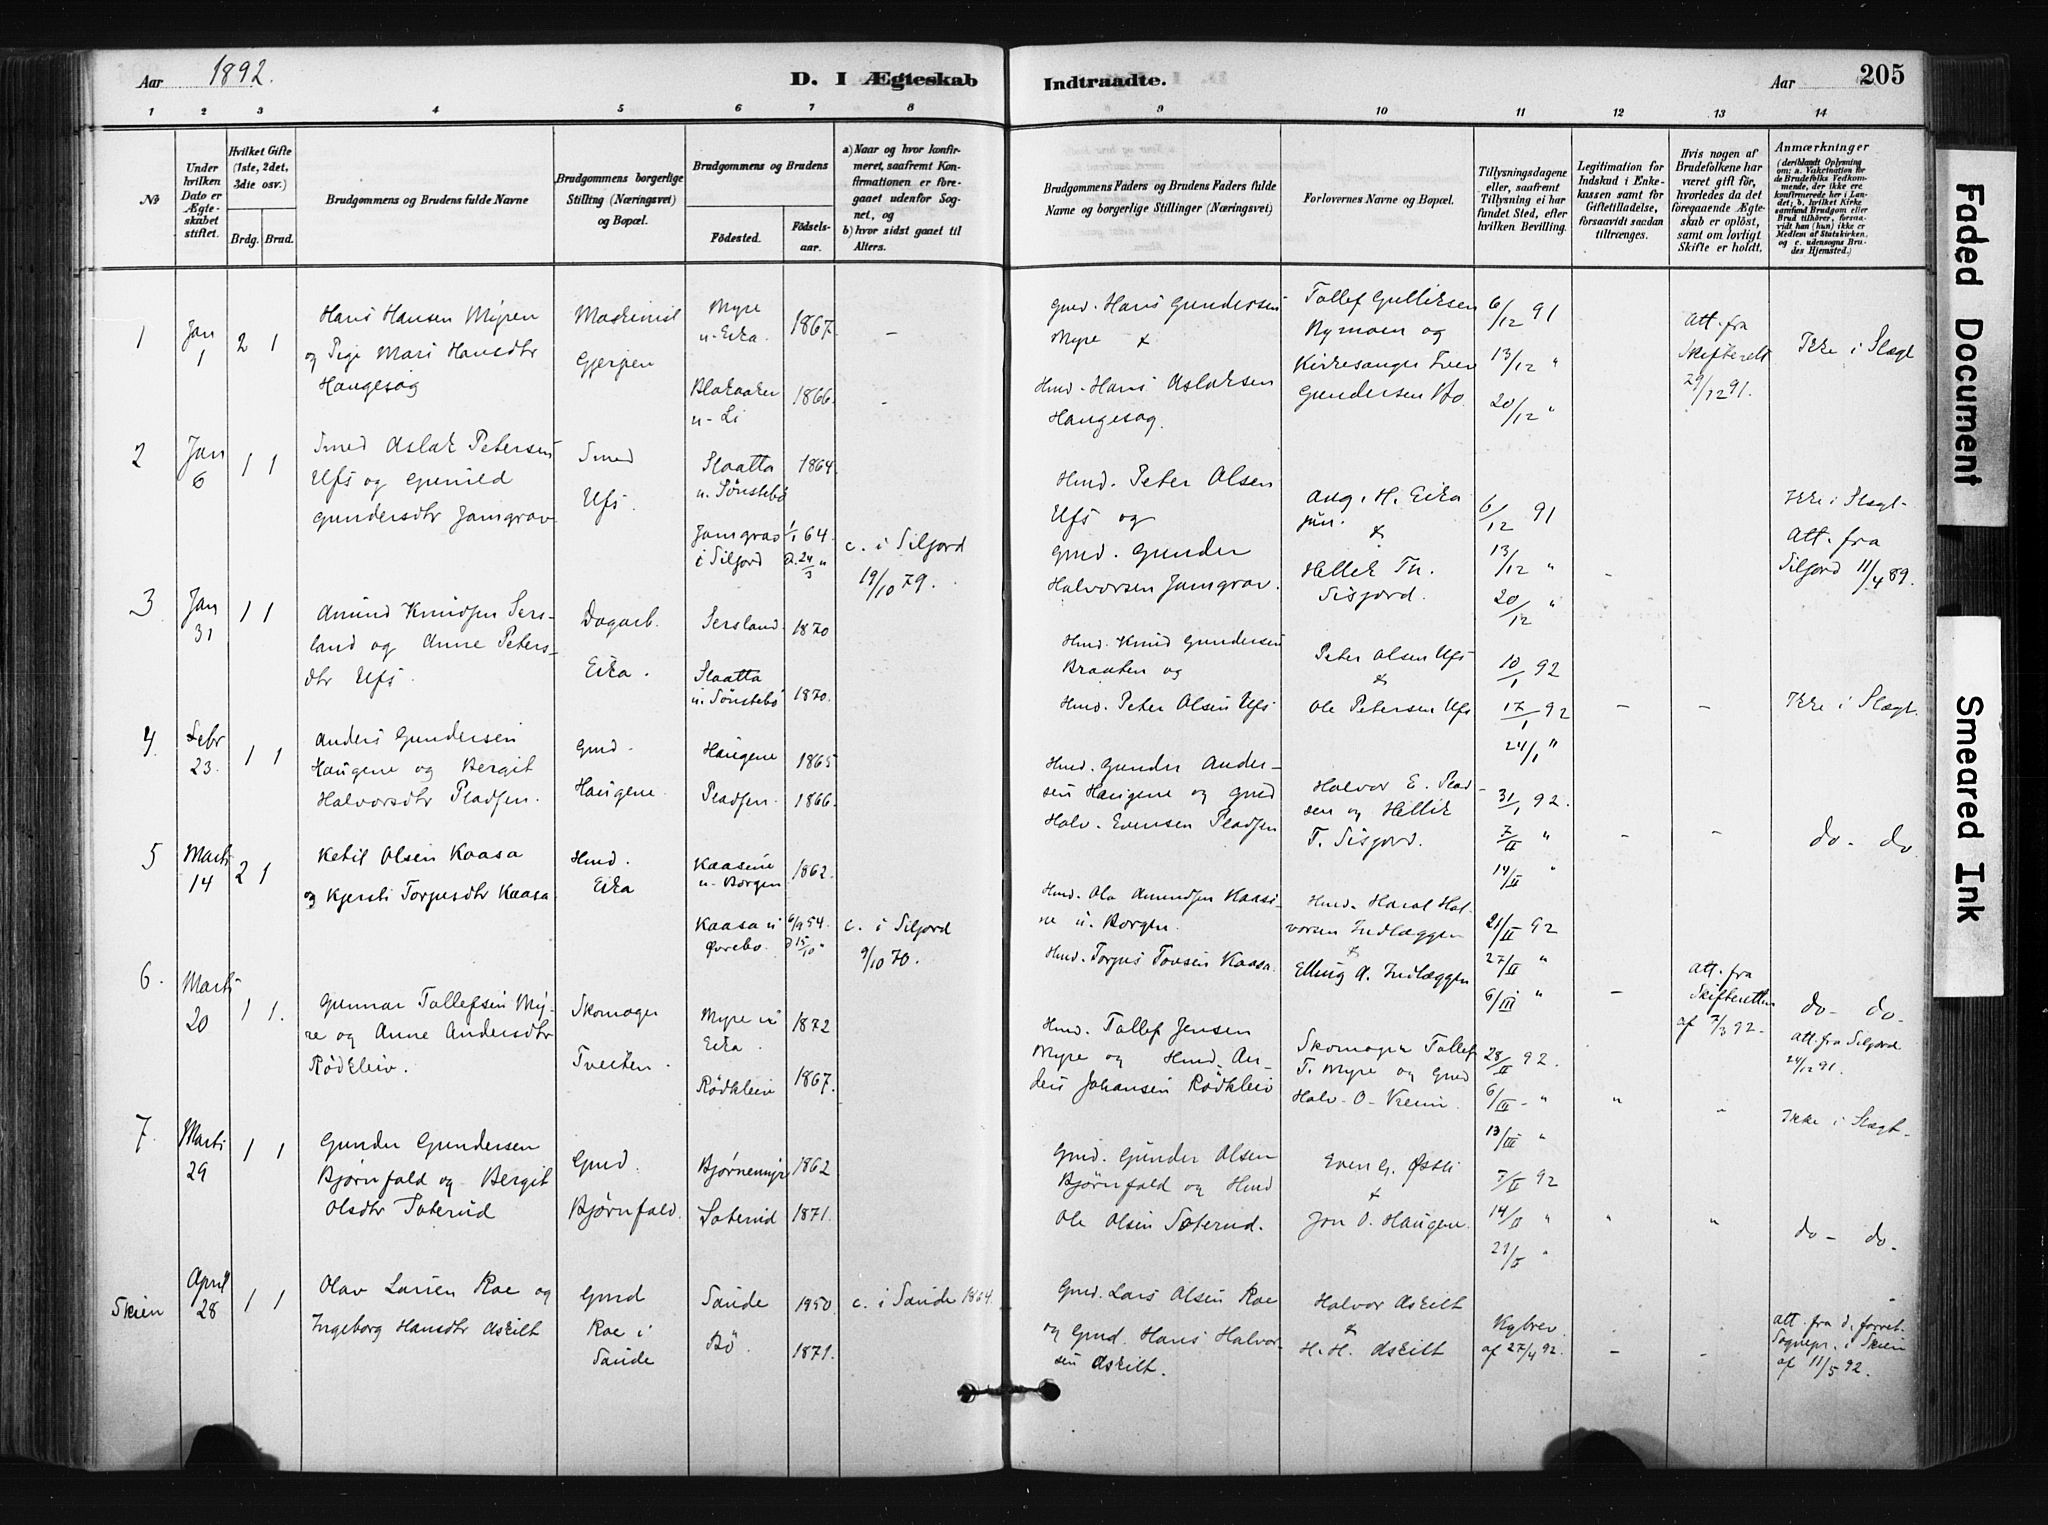 Aar 1892.
D. I Ægteskab
Indtraadte.
Aar
205
1 2 3 4 5 6 7 8
9 10 11 12 13 14
No
Under hvilken Dato er Ægteskabet stiftet.
Hvilket Gifte (1ste, 2det, 3die osv.)
Brdg. Brud.
Brudgommens og Brudens fulde Navne
Brudgommens borgerlige Stilling (Næringsvei) og Bopæl.
Brudgommens og Brudens
Födested.
Födselsaar.
a) Naar og hvor konfirmeret, saafremt Konfirmationen er foregaaet udenfor Sognet, og
b) hvor sidst gaaet til Alters.
Brudgommens Faders og Brudens Faders fulde Navne og borgerlige Stillinger (Næringsvei)
Forlovernes Navne og Bopæl.
Tillysningsdagene eller, saafremt Tillysning ei har fundet Sted, efter hvilken Bevilling.
Legitimation for Indskud i Enkekassen samt for Giftetilladelse, forsaavidt saadan tiltrænges.
Hvis nogen af Brudefolkene har været gift för, hvorledes da det foregaaende Ægteskab er oplöst, samt om lovligt Skifte er holdt.
Anmærkninger
(deriblandt Oplysning om: a. Vakcination for Brudefolks Vedkommende, der ikke ere konfirmerede her i Landet; b. hvilket Kirkesamfund Brudgom eller Brud tilhörer, forsaavidt han (hun) ikke er Medlem af Statskirken, og c. udensogns Brudes Hjemsted.)
1
Jan 1
2 1
Hans Hansen Myren
og Pige Mari Hansdtr
Haugesag
Gjerpen
Myre
u. Eika
1867.
Blakaaker
u. Li
1866.
Gmd. Hans Gundersen
Myre &
Hmd. Hans Aslaksen
Haugesag.
Tollef Gulliksen
Nymoen og
Kirkesanger Iver
Gundersen Bø.
6/12 91
13/12 "
20/12 "
Att. fra
Skifteret
29/12 91.
Ikke i Slægt
2
Jan 6
1 1
Smed Aslak Petersen
Ufs og Gunild
Gundersdtr Jamgrav
Smed
Ufs.
Slaatta
u. Sønstebø
1864.
Jamgrav
i Siljord
1/1 64
d. 24/3 "
c. i Siljord
19/10 79.
Hmd. Peter Olsen
Ufs og
Gmd. Gunder
Halvorsen Jamgrav.
Aug. H. Eika
jun.
&
Hellik Tn.
Sisjord.
6/12 91
13/12 "
20/12 "
Ikke i Slægt.
Att. fra
Siljord 11/4 89.
3
Jan 31
1 1
Amund Knudsen Sersland
og Anne Petersdtr
Ufs.
Dagarb.
Eika.
Sersland.
1870
Slaatta
u. Sønstebø
1870.
Hmd. Knud Gundersen
Braaten og
Hmd. Peter Olsen Ufs
Peter Olsen Ufs
&
Ole Petersen Ufs
10/1 92
17/1 92
24/1 "
Ikke i Slægt.
4
Febr 23.
1 1
Anders Gundersen
Haugene og Bergit
Halvorsdtr Pladsen.
Gmd.
Haugene.
Haugene
1865
Pladsen.
1866.
Hmd. Gunder Andersen
Haugene og Gmd
Halv. Evensen Pladsen
Halvor E. Pladsen
og Hellik
T. Sisjord.
31/1 92.
7/II "
14/II "
do - do.
5
Marts 14
2 1
Ketil Olsen Kaasa
og Kjersti Torgusdtr Kaasa
Hmd.
Eika
Kaasene
u. Borgen
1862.
Kaasa u
Øvrebø.
6/9 54.
d 15/10 "
c. i Siljord
9/10 70.
Hmd. Ole Amundsen Kaasine
u. Borgen.
Hmd. Torgus Tovsen Kaasa.
Hmd. Haral Halvorsen
Indlæggen
&
Elling A. Indlæggen
21/II 92
27/II "
6/III "
Att. fra
Skifteretten
af 7/3 92.
do - do.
Att. fra Siljord
24/12 91.
6.
Marts 20
1 1.
Gunnar Tollefsen Myre
og Anne Andersdtr
Rødkleiv.
Skomager
Tveiten.
Myre u
Eika.
1872
Rødkleiv
1867.
Hmd. Tollef Jensen
Myre og Hmd. Anders
Johansen Rødkleiv
Skomager Tollef
T. Myre og Gmd
Halv. O. Vreim.
28/II 92.
6/III "
13/III "
Ikke i Slægt.
7.
Marts 29
1 1
Gunder Gundersen
Bjørnfald og Bergit
Olsdtr Soterud
Gmd.
Bjørnfald.
Bjørnemyr
1862
Soterud
1871.
Gmd. Gunder Olsen
Bjørnfald og Hmd
Ole Olsen Soterud.
Even G. Østli
&
Jon O. Haugen.
7/II 92
14/II "
21/II "
do - do.
Skien
April 28
1 1
Olav Larsen Roe og
Ingeborg Hansdtr Askilt
Gmd
Roe i
Saude
Saude
1850.
Bö.
1871.
c. i Saude 1864.
Gmd. Lars Olsen Roe
og Gmd. Hans Halvorsen
Askilt.
Halvor Askilt
&
H. H. Askilt
Kgbrev.
af 27/4 92.
Att. fra d. forret.
Sognepr. i Skien
af 11/5 92.
Faded Document
Smeared Ink